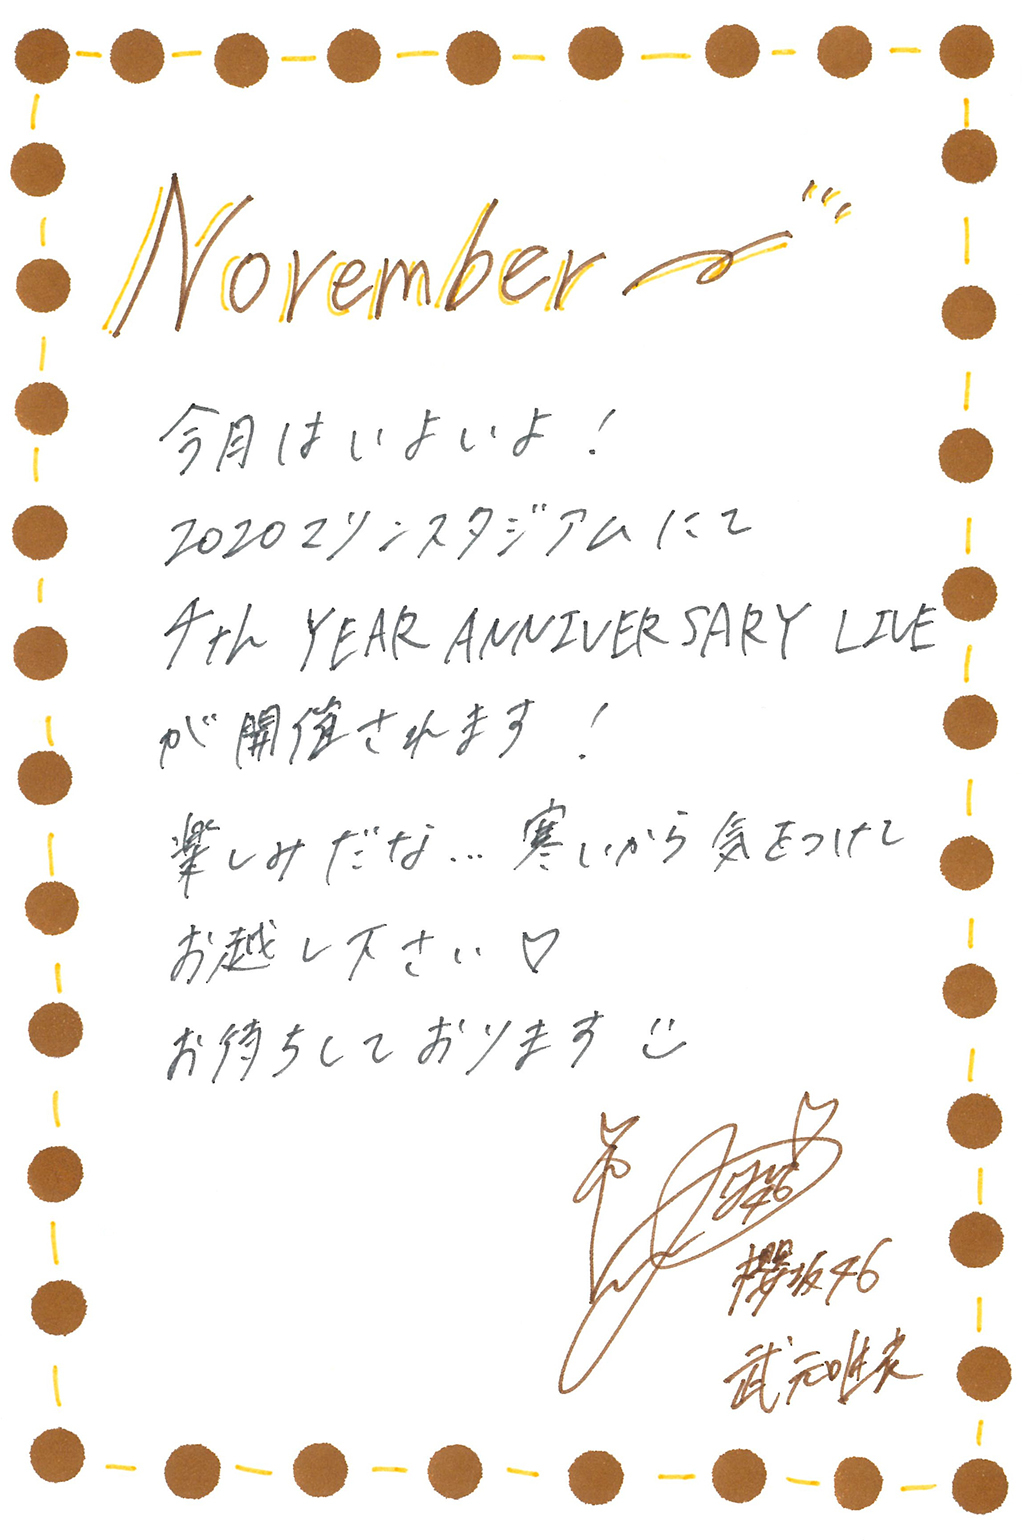 November
今月はいよいよ！
ZOZOマリンスタジアムにて
4th YEAR ANNIVERSARY LIVE
が開催されます！
楽しみだな…寒いから気をつけて
お越し下さい♡
お待ちしております
46
櫻坂46
武元唯衣